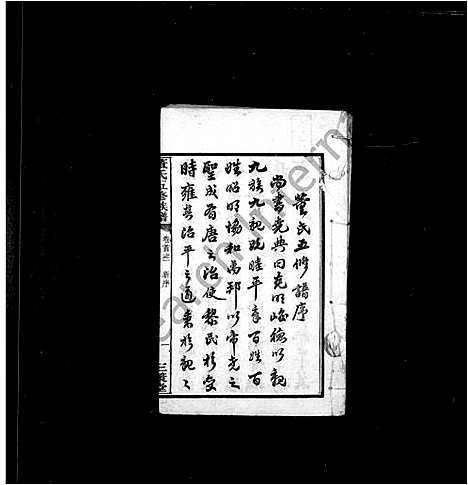 董氏五修譜序
尚書堯典曰克明峻德以親
九族九親既睦平章百姓百
姓昭明協和萬邦以帝堯之
聖成有唐之治使黎民於變
時雍其治平之道秉於親々
董氏五修族譜 卷首之 新序 三策堂
earch Interna